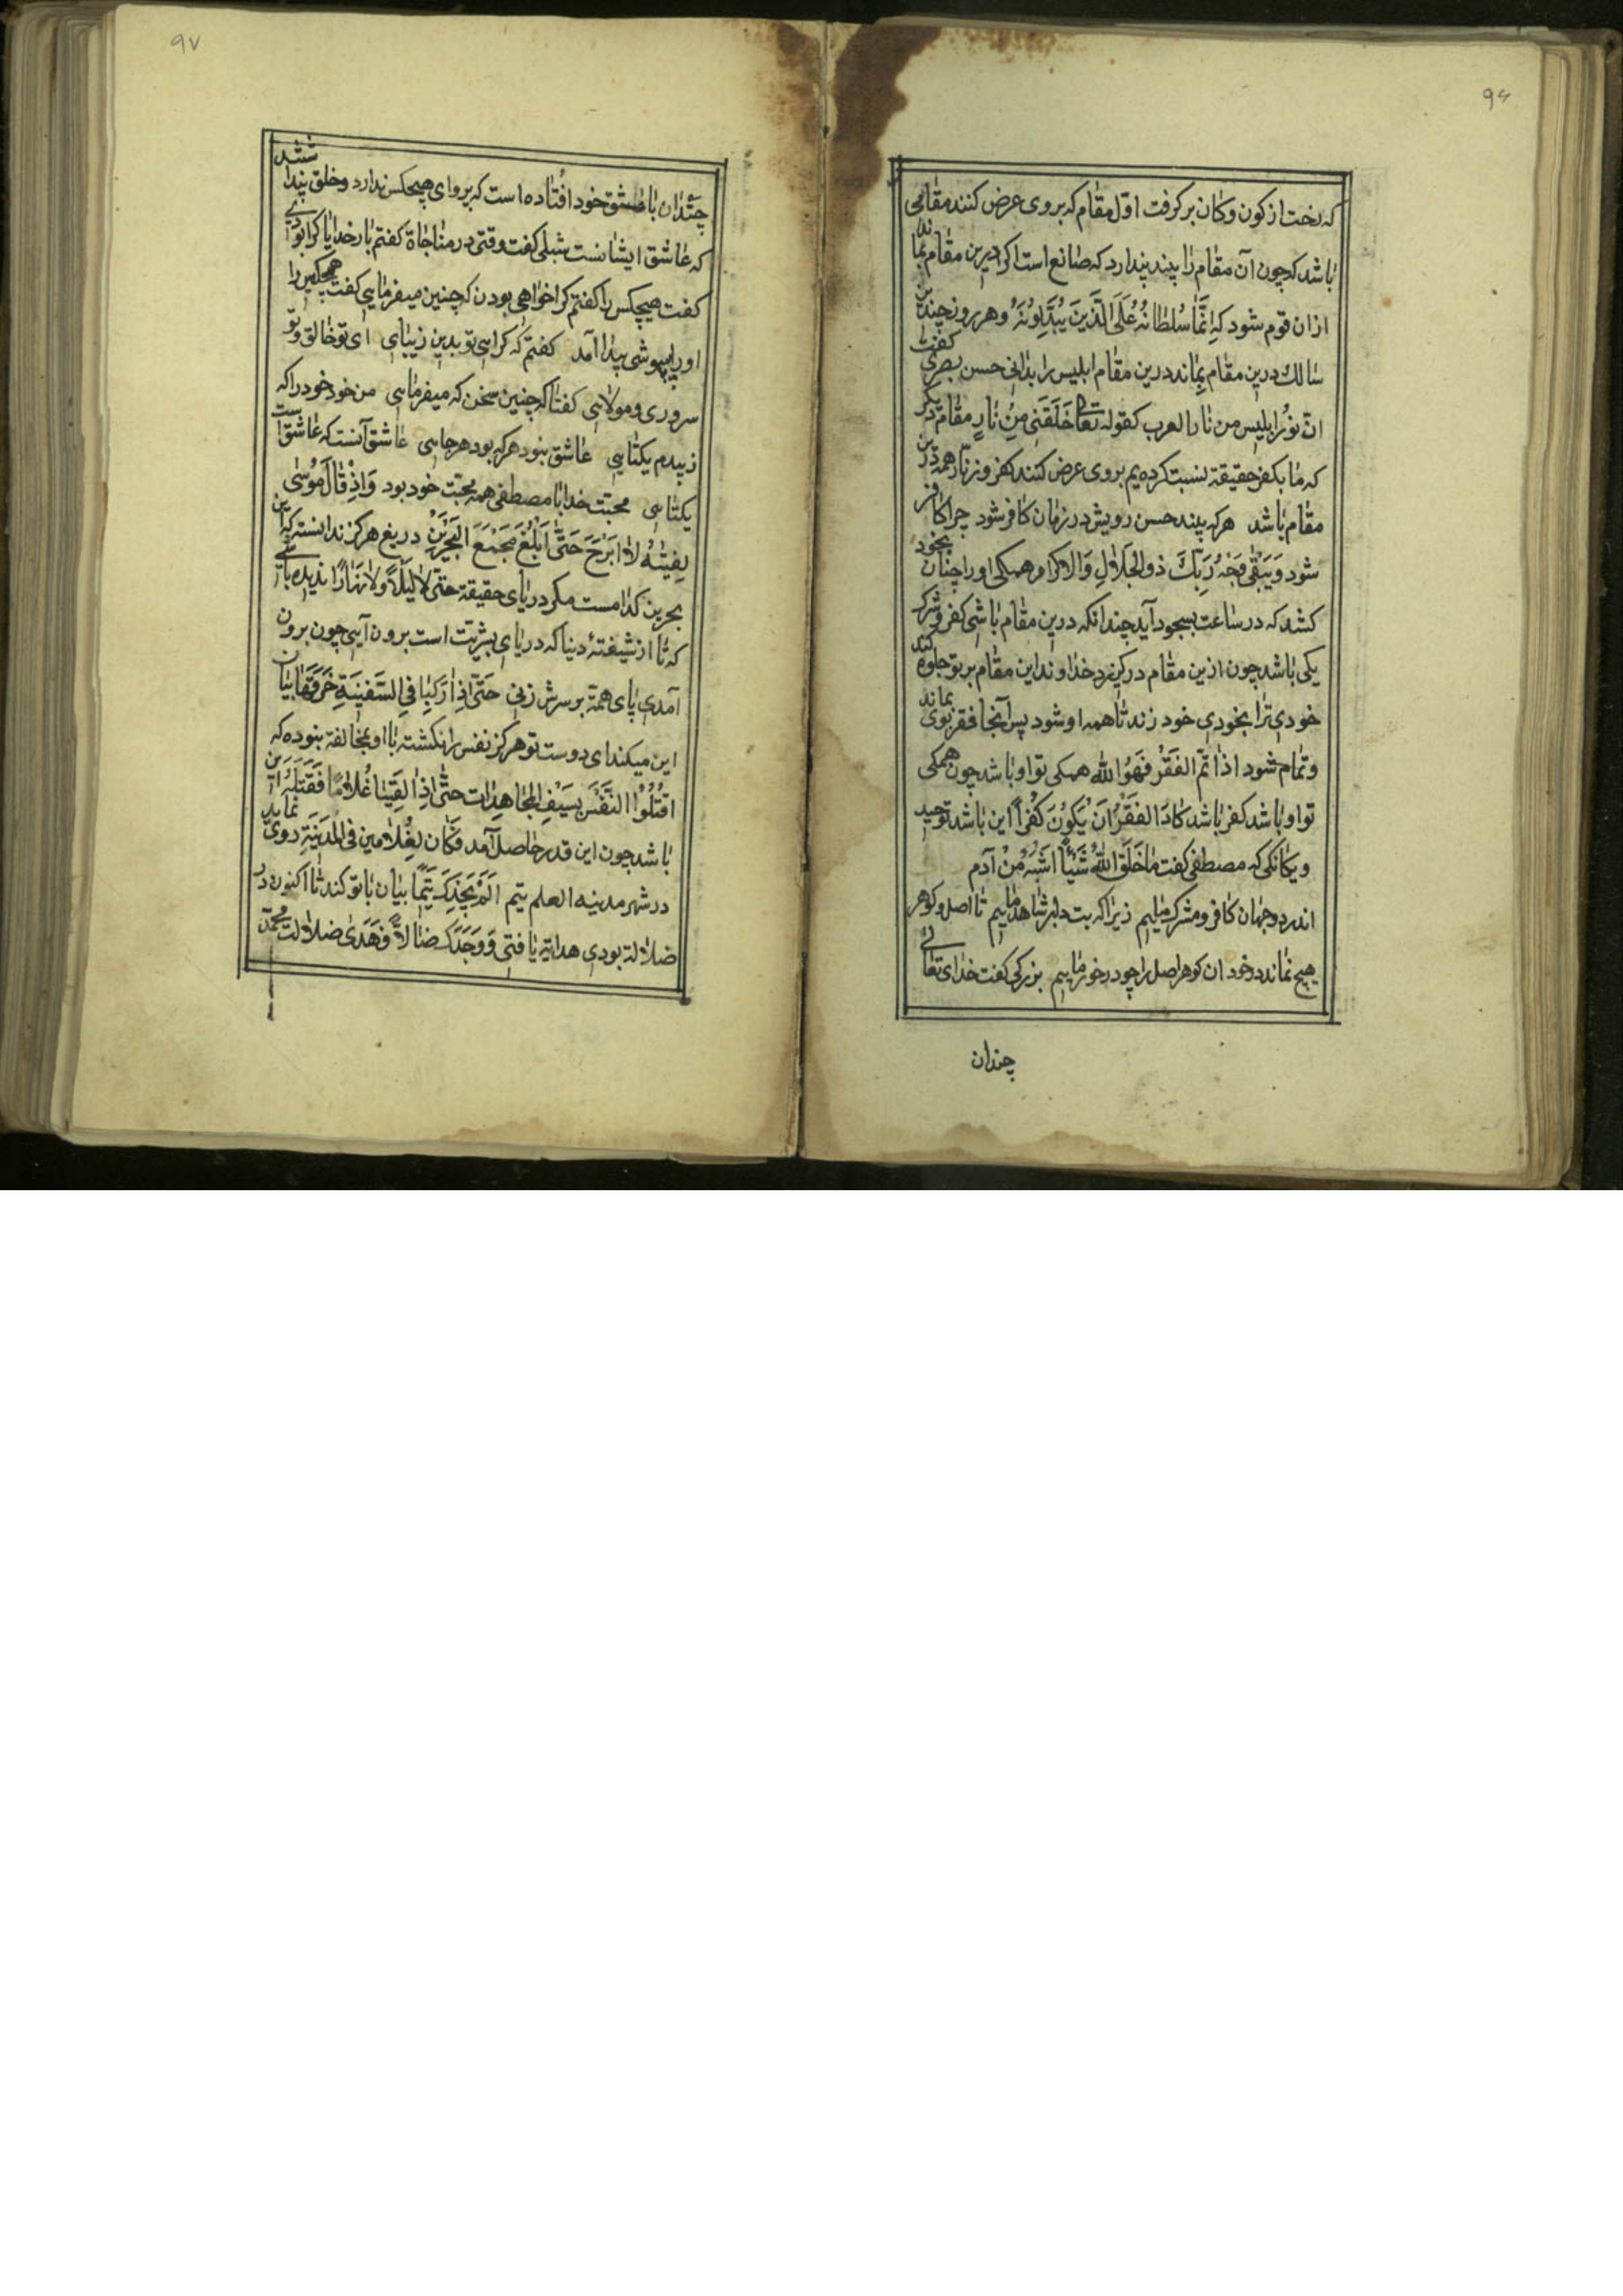 ۹۶
که رخت از کون و کان برکرفت اوّل مقام که بروی عرض کنند مقامی
باشد که چون آن مقام را پیند پندارد که صانع است اکر درین مقام بماند
ازان قوم شود که اِنَّمَا سُلطانُهُ عَلَی الَّذینَ یُبَدِّلُونَهُ وهر روز چندین
سالک درین مقام بماند درین مقام ابلیس را بدانی حسن بصری کفت
انّ نُورَ ابلیس من نار العرب کقوله تعا خَلَقَنِی مِن نارٍ مقام دیکر
که ما بکفر حقیقة نسبت کرده یم بروی عرض کنند کفر و زنار همه درین
مقام باشد هرکه پیند حسن رویش در زمان کافر شود چرا کافر
شود وَیَبقی وَجهُ رَبِّکَ ذو الجَلالِ وَالاکرام همکی اورا چنان بخود
کشد که در ساعت بسجود آید چندانکه درین مقام باشی کفر و شرک
یکی باشد چون ازین مقام درکیزد خداوند این مقام بر تو جلوه کند
خودی ترا بخودی خود زند تا همه او شود پس آنجا فقر بوی بماند
وتمام شود اذا تم الفَقرُ فَهُوَ الله همکی تو او باشد چون همکی
تو او باشد کفر باشد کادَ الفَقرُ اَنْ یَکُونَ کُفراً این باشد توحید
ویکانکی که مصطفی کفت ماخَلَقَ اللهُ شَیْئاً اَشبَهَ مِنْ آدم
اندر دو جهان کافر و مشرک مایلیم زیراکه بت دلبر شاهد ماییم تا اصل و کوهر
هیچ نماند در خود ان کوهر اصل را چو در خور ماییم بزرکی کفت خدای تعالی
چندان
۹۷
چندان با عشق خود افتاده است که پروای هیچکس ندارد وخلق پندا شتند
که عاشق ایشانست شبلی کفت وقتی در مناجاة کفتم بار خدایا کرا بودی
کفت هیچکس را کفتم کرا خواهی بودن که چنین میفرمایی کفت هیچکس را
اورا بیهوشی پیدا آمد کفتم که کرایی تو بدین زیبای ای تو خالق وتو
سروری و مولایی کفتا که چنین سخن که میفرمایی من خود خود را که
زیبدم یکتایی عاشق نبود هرکه بود هرجایی عاشق آنست که عاشق است
یکتایی محبت خدا با مصطفی همه محبت خود بود وَاِذْ قالَ مُوسی
لِفَتیهُ لا ابرَحَ حَتّی اَبْلُغَ مَجمَعَ البَحرَین دریغ هرکز ندانسته که این
بحرین کدامست مکر دریای حقیقة حتی لالَیلاً ولا نَهاراً ندیده باشی
که تا از شیفتهٔ دنیا که دریای بشریت است برون آیی چون برون
آمدی پای همّة بر سرش زنی حَتّی اِذا رَکِبا فِی السَّفینَةِ خَرَقَها بیان
این میکند ای دوست تو هرکز نفس را نکشته با او مخالفة ننوده که
اقتُلُوا النَفسَ بِسَیْفِ المُجاهِدات حتّی اِذا لقِیَنا غُلاماً فَقَتَلَهُ این
باشد چون این قدر حاصل آمد فَکان لِغُلامین فِی المَدینَةِ روی نماید
در شهر مدینه العلم یتم اَلَمْ یَجِدکَ یَتیماً بیان با تو کند تا اکنون در
ضلالة بودی هدایة یافتی وَوَجَدَکَ ضالاً فَهَدی ضلالت محمّد